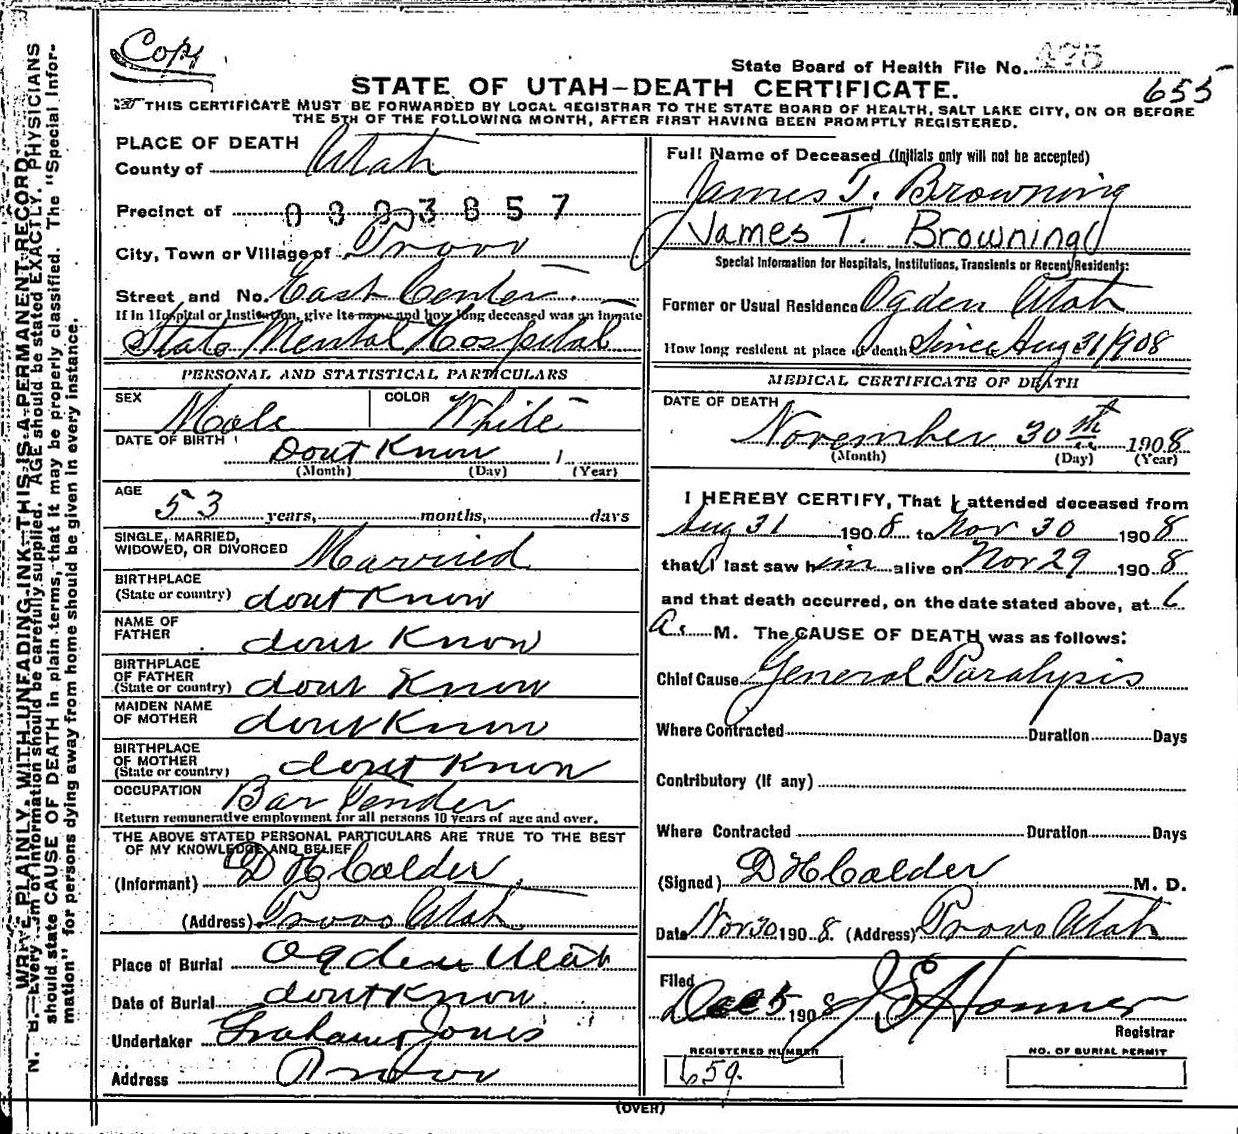 Copy
State Board of Health File No. 475
655
STATE OF UTAH—DEATH CERTIFICATE.
THIS CERTIFICATE MUST BE FORWARDED BY LOCAL REGISTRAR TO THE STATE BOARD OF HEALTH, SALT LAKE CITY, ON OR BEFORE
THE 5TH OF THE FOLLOWING MONTH, AFTER FIRST HAVING BEEN PROMPTLY REGISTERED.
N. B.—WRITE PLAINLY, WITH UNFADING INK—THIS IS A PERMANENT RECORD.
Every item of information should be carefully supplied. AGE should be stated EXACTLY. PHYSICIANS
should state CAUSE OF DEATH in plain terms, that it may be properly classified. The "Special Infor-
mation" for persons dying away from home should be given in every instance.
PLACE OF DEATH
County of Utah
Precinct of 0303857
City, Town or Village of Provo
Street and No. East Center
If in Hospital or Institution, give its name and how long deceased was an inmate
State Mental Hospital
PERSONAL AND STATISTICAL PARTICULARS
SEX Male COLOR White
DATE OF BIRTH Dont Know, 1
(Month) (Day) (Year)
AGE
53 years, months, days
SINGLE, MARRIED,
WIDOWED, OR DIVORCED Married
BIRTHPLACE
(State or country) dont Know
NAME OF
FATHER dont Know
BIRTHPLACE
OF FATHER
(State or country) dont Know
MAIDEN NAME
OF MOTHER dont Know
BIRTHPLACE
OF MOTHER
(State or country) dont Know
OCCUPATION Bar Tender
Return remunerative employment for all persons 10 years of age and over.
THE ABOVE STATED PERSONAL PARTICULARS ARE TRUE TO THE BEST
OF MY KNOWLEDGE AND BELIEF
(Informant) D H Calder
(Address) Provo Utah
Place of Burial Ogden Utah
Date of Burial dont Know
Undertaker Graham Jones
Address Provo
Full Name of Deceased (Initials only will not be accepted)
James T. Browning
James T. Browning
Special Information for Hospitals, Institutions, Transients or Recent Residents:
Former or Usual Residence Ogden Utah
How long resident at place of death Since Aug 31/908
MEDICAL CERTIFICATE OF DEATH
DATE OF DEATH
November 30th 1908
(Month) (Day) (Year)
I HEREBY CERTIFY, That I attended deceased from
Aug 31 1908 to Nov 30 1908
that I last saw him alive on Nov 29 1908
and that death occurred, on the date stated above, at 6
A. M. The CAUSE OF DEATH was as follows:
Chief Cause General Paralysis
Where Contracted Duration Days
Contributory (If any)
Where Contracted Duration Days
(Signed) D H Calder M. D.
Date Nov 30 1908. (Address) Provo Utah
Filed
Dec 5 1908 Registrar
REGISTERED NUMBER NO. OF BURIAL PERMIT
659.
(OVER)